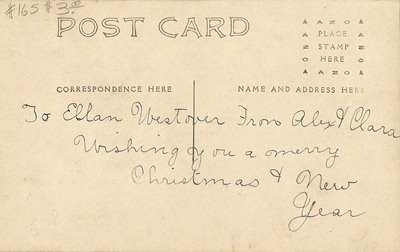 #165 $3.00
POST CARD
AZO
PLACE
STAMP
HERE
AZO
CORRESPONDENCE HERE
NAME AND ADDRESS HERE
To Ellan Westover From Alex & Clara
Wishing you a merry
Christmas & New
Year